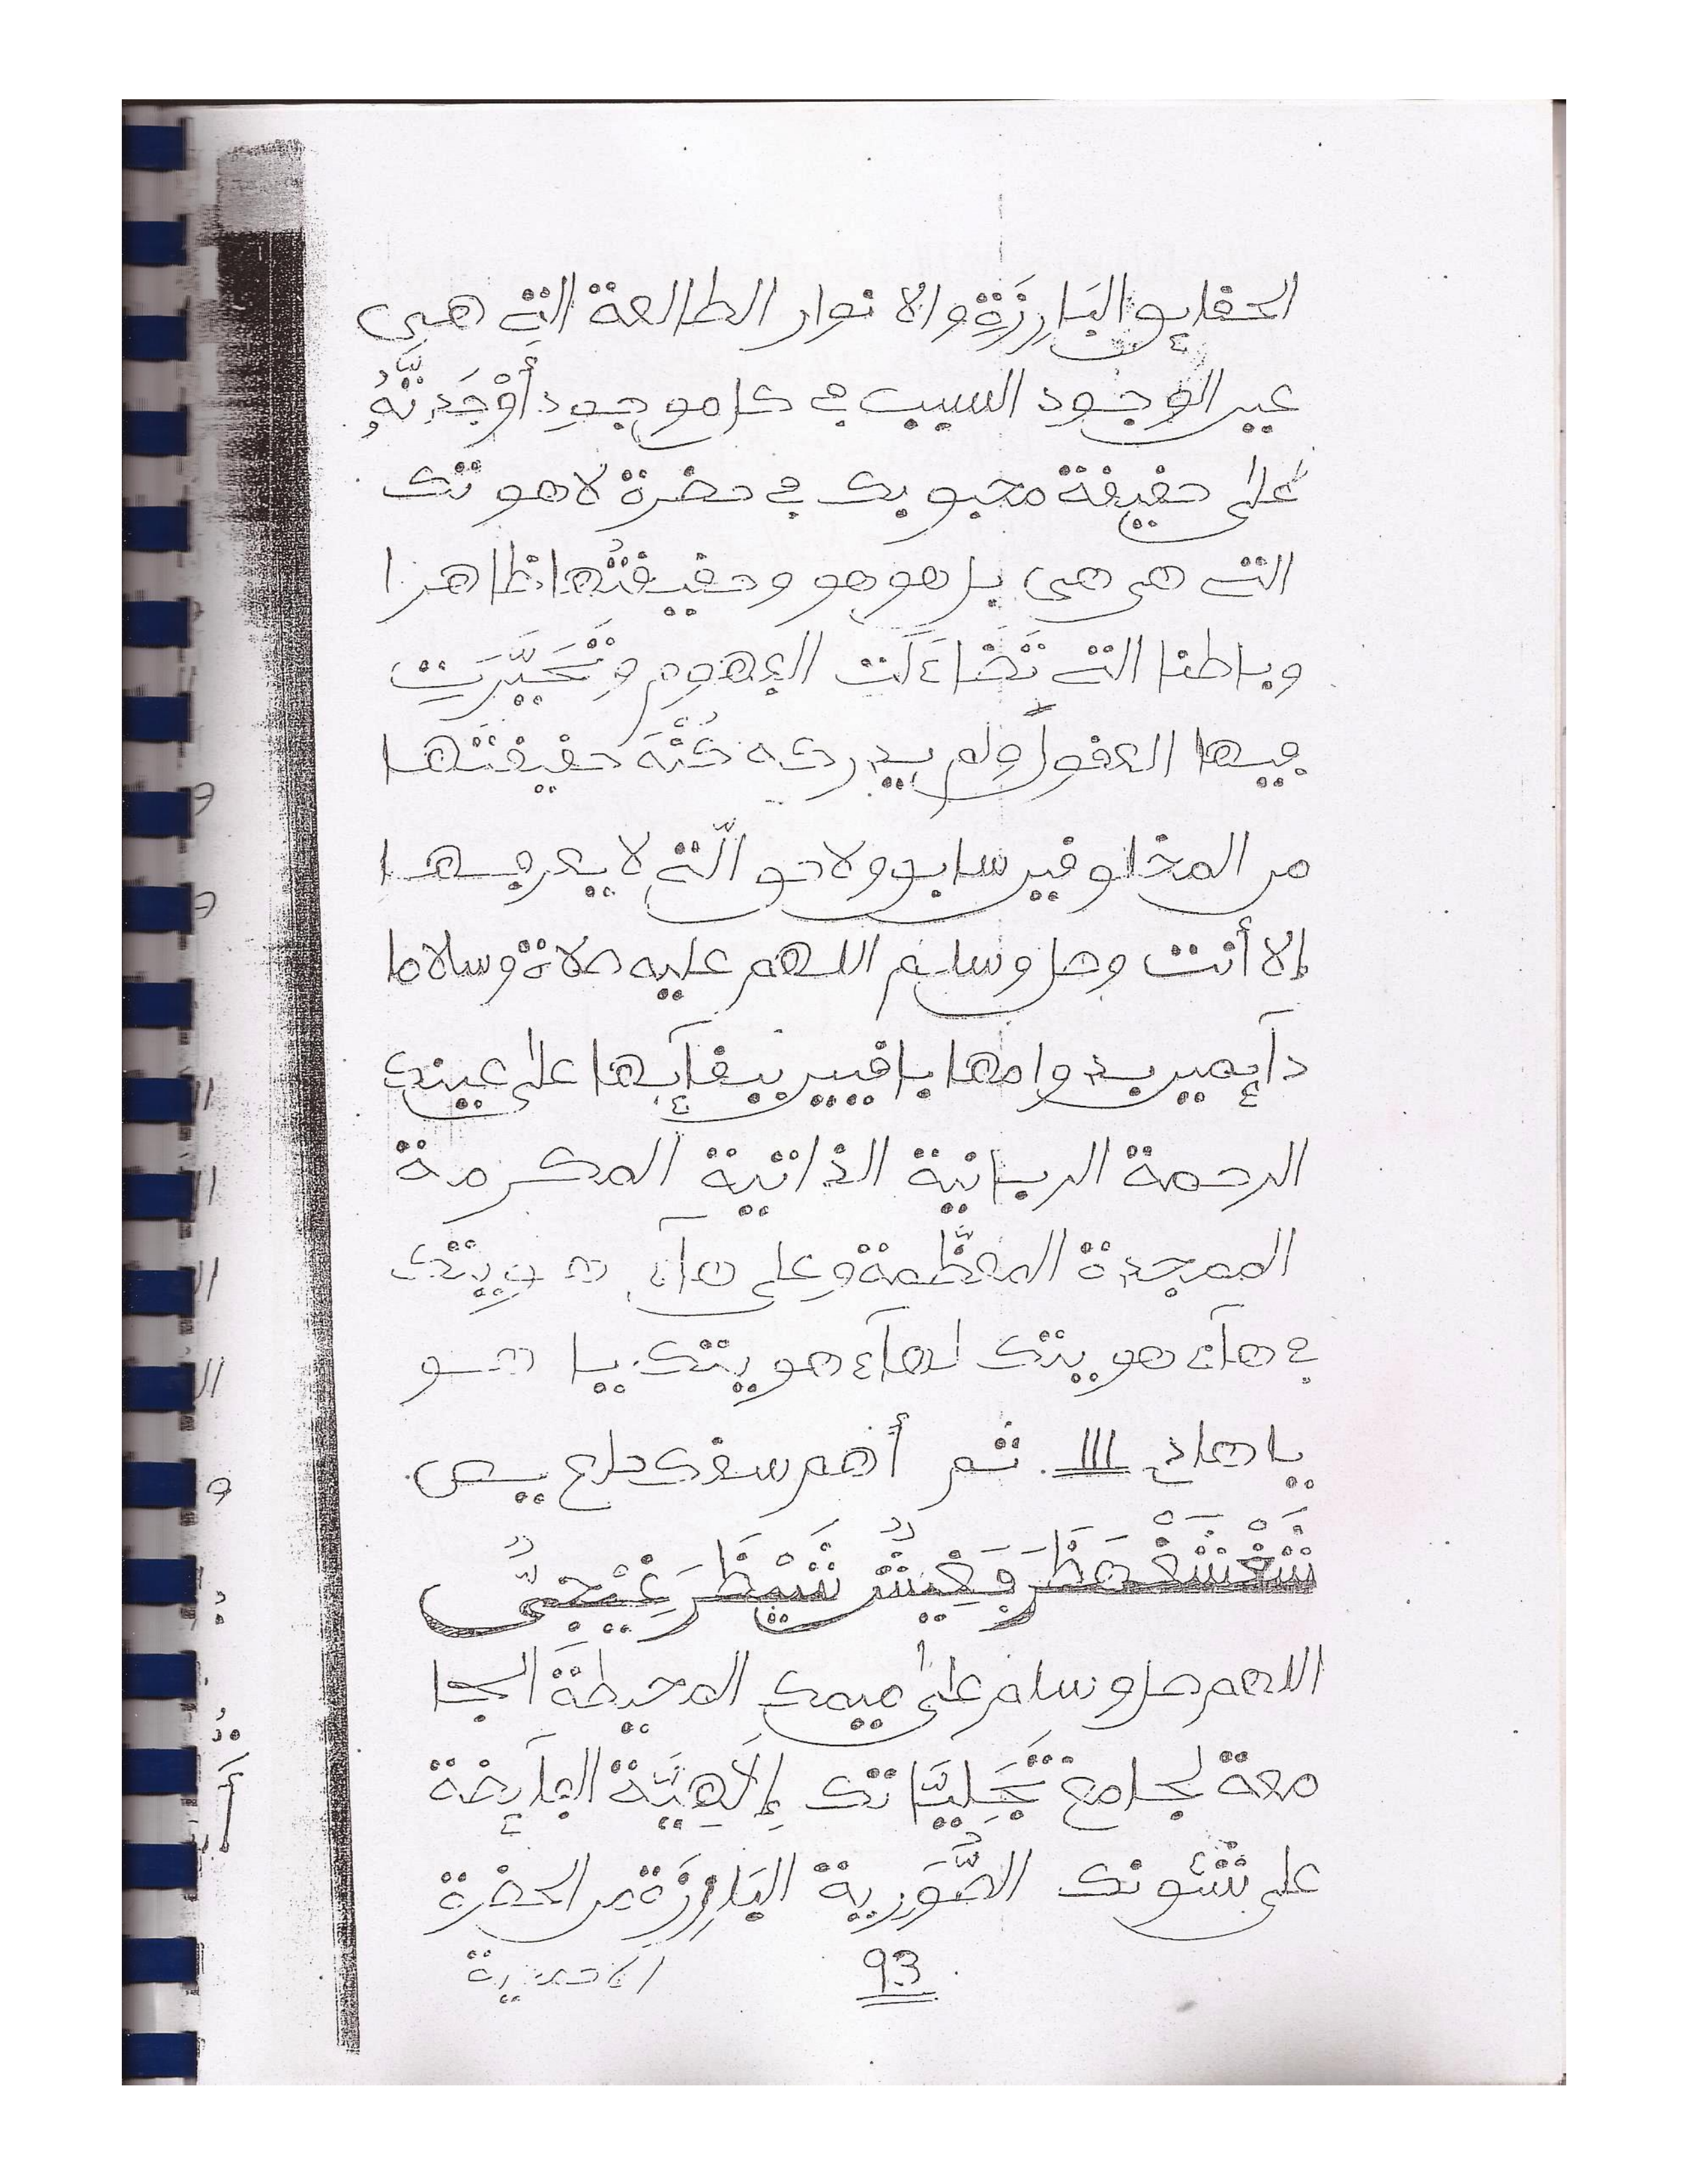 الحقايق البَارِزَةِ والانوار الطالعة التِے هي
عين الوجود السبب في كل موجودٍ أَوْجَدتَّهُ
على حقيقة محبوبك في حضرة لاهوتك
التے هي هي بل هو هو وحقيقتُها ظاهرا
وباطنا التے تَضَاءَلَت الفهوم وتَحَيَّرَت
فيها العقول ولم يدركه كُنْهَ حقيقتها
من المخلوقين سابق ولاحق الّتے لا يعرفها
إلا أنت وصل وسلم اللهم عليه صلاة وسلاما
دآيمين بدوامها باقيين ببقآيها على عين
الرحمة الربانية الذاتية المكرمة
الممجدة المعظّمة وعلى هآء هويتك
في هآء هويتك لهآء هويتك يا هو
يا هاد ااا. ثم أهم سقك حلع يص
اللهم صل وسلم على ميمك المحيطة الجا
معة لجامع تَجَلِيَّاتك إِلَاهِيَّة الفآيضة
على شئونك الصُّورية البَارِزَة من الحضرة
93
الاحدية